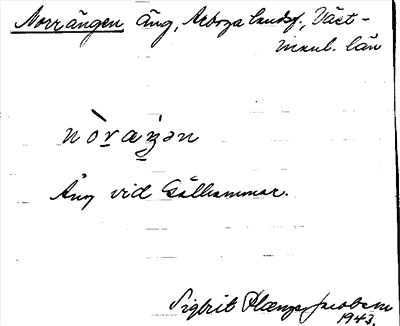 Norrängen äng, Arboga landsf., Väst-
manl. län
nòraŋən
Äng vid Gälhammar.
Sigbrit Plænge Jacobson
1943.